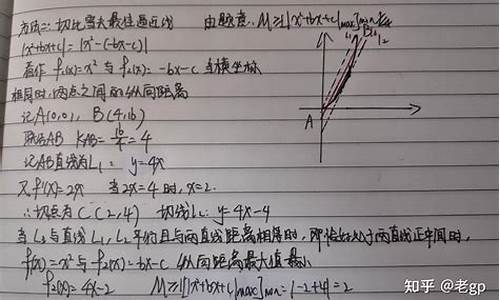 方法二:切比雪夫最佳逼近线
由题意,M≥[|x²+bx+c|max]min
|x²+bx+c|=|x²-(-bx-c)|
看作 f₁(x)=x² 与 f₂(x)=-bx-c 当横坐标
相同时,两点之间的纵向距离
记A(0,0), B(4,16)
连结AB KAB=16/4=4
记AB直线为L₁: y=4x
又f'(x)=2x 当2x=4时,x=2.
∴切点为C(2,4) 切线L₂:y=4x-4
当L₃与直线L₁,L₂平行且与两直线距离相等时,即恰好处于两直线正中间时,
f(x)=x²与-f₂(x)=bx-c 纵向距离最大值最小
f₂(x)=4x-2 M≥[|x²+bx+c|max]min=|-2+4|=2
A
B
L₁
L₂
知乎 @egp